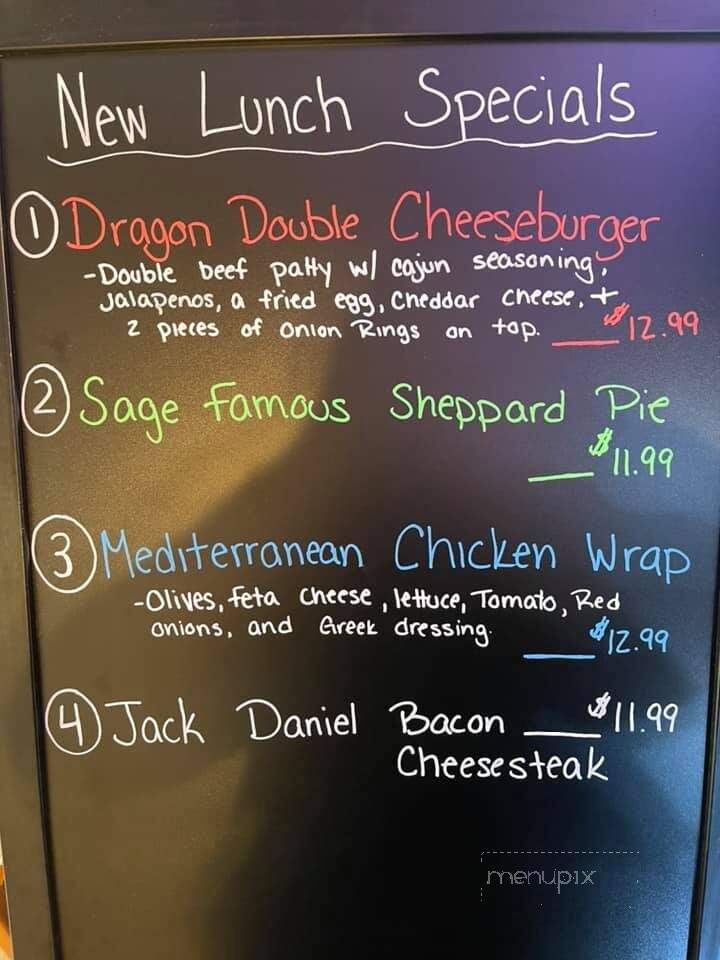 New Lunch Specials
1 Dragon Double Cheeseburger
-Double beef patty w/ cajun seasoning,
Jalapenos, a fried egg, cheddar cheese, +
2 pieces of onion Rings on top. ___ $12.99
2 Sage Famous Sheppard Pie
___ $11.99
3 Mediterranean Chicken Wrap
-Olives, feta cheese, lettuce, Tomato, Red
onions, and Greek dressing.
___ $12.99
4 Jack Daniel Bacon ___ $11.99
Cheesesteak
menupix